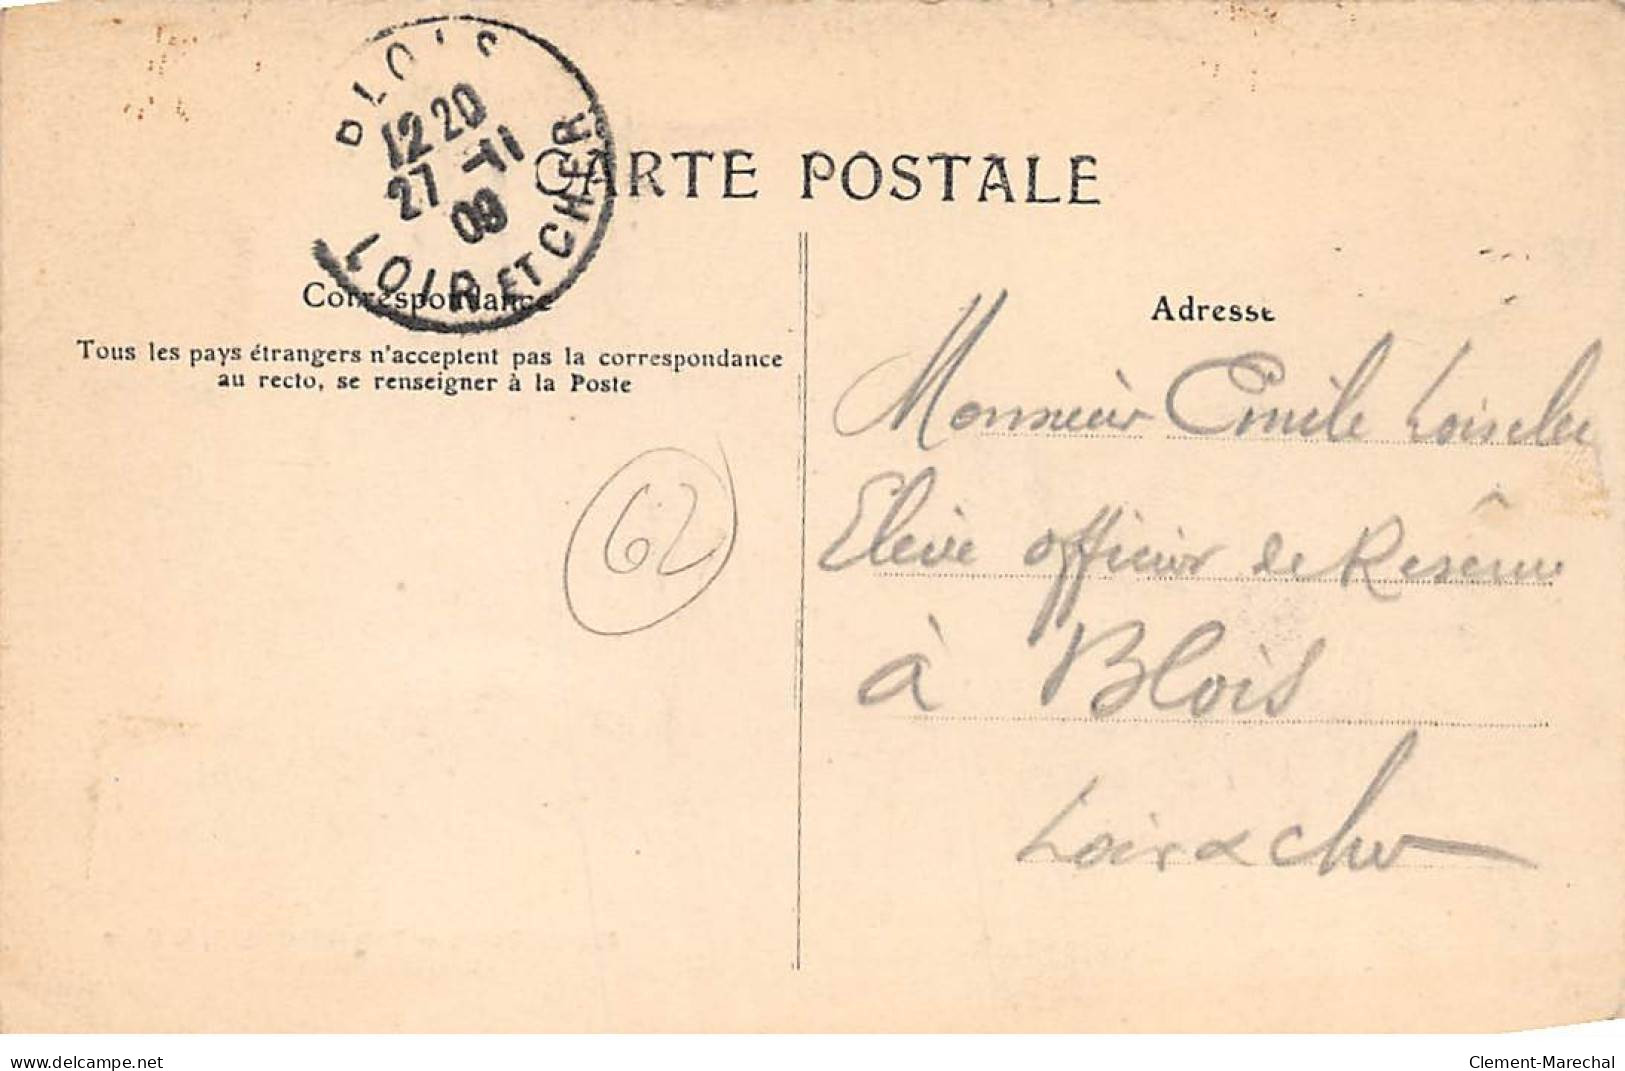 BLOIS
12 20
27 -11
09
LOIR ET CHER
CARTE POSTALE
Correspondance
Tous les pays étrangers n'acceptent pas la correspondance
au recto, se renseigner à la Poste
62
Adresse
Monsieur Emile
Eleve officier de Reserve
à Blois
Loir & Cher
www.delcampe.net
Clement-Marechal